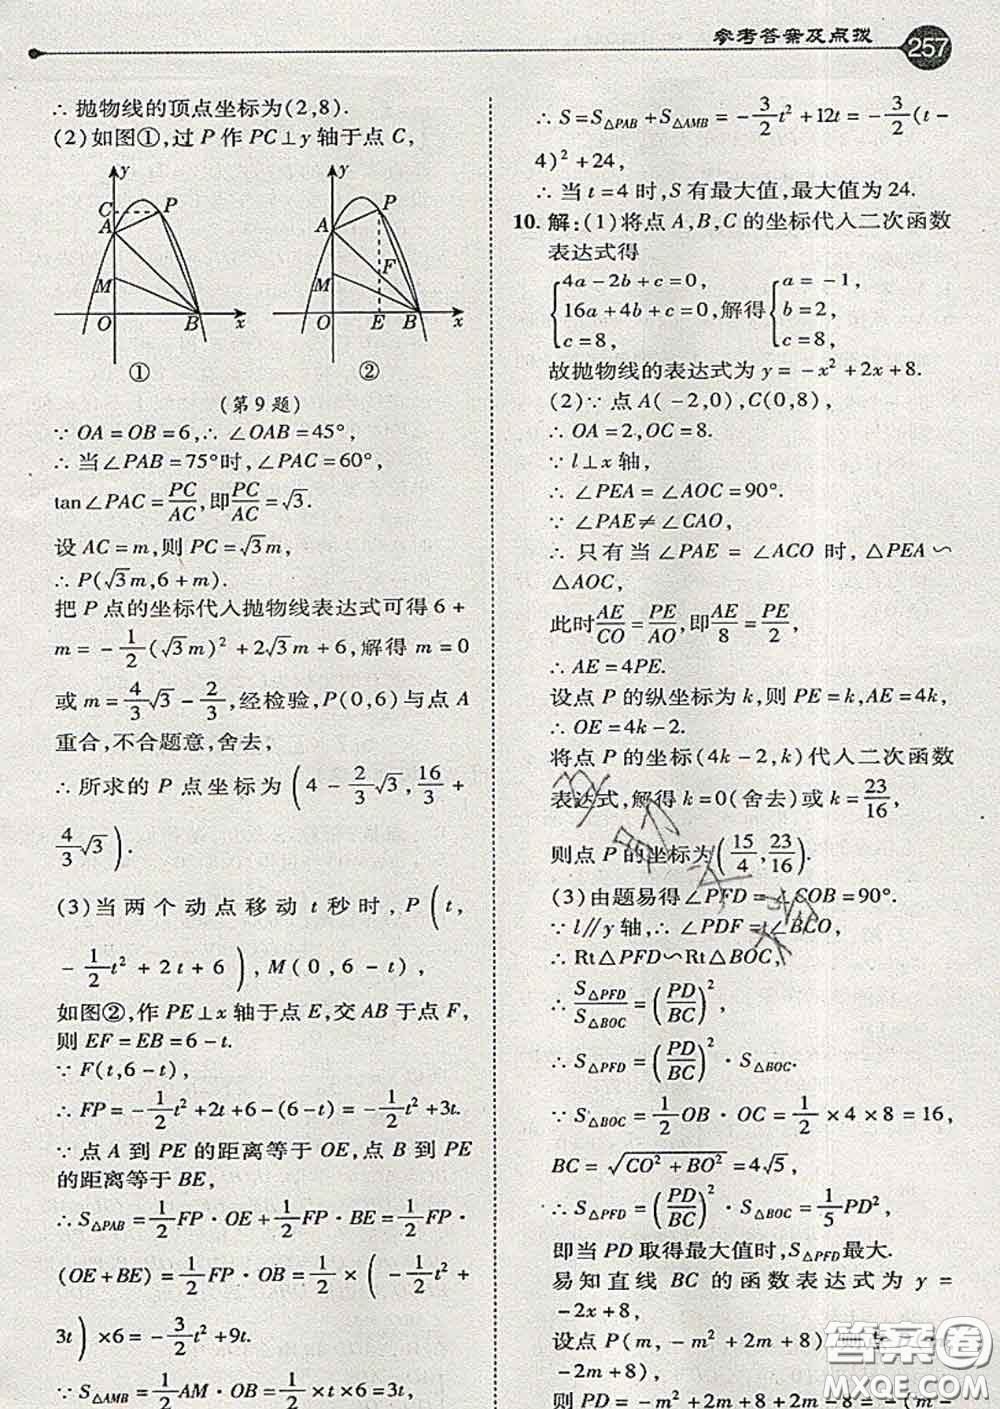 参考答案及点拨 257
∴ 抛物线的顶点坐标为(2,8).
(2)如图①,过 P 作 PC⊥y 轴于点 C,
y
C
P
A
M
O
B
x
①
y
P
A
F
M
O
E
B
x
②
(第 9 题)
∵ OA=OB=6,∴ ∠OAB=45°,
∴ 当∠PAB=75°时,∠PAC=60°,
tan∠PAC=PC/AC,即PC/AC=√3.
设 AC=m,则 PC=√3m,
∴ P(√3m,6+m).
把 P 点的坐标代入抛物线表达式可得 6+
m=-1/2(√3m)²+2√3m+6,解得 m=0
或 m=4/3√3-2/3,经检验,P(0,6)与点 A
重合,不合题意,舍去,
∴ 所求的 P 点坐标为(4-2/3√3,16/3+
4/3√3).
(3)当两个动点移动 t 秒时,P(t,
-1/2t²+2t+6),M(0,6-t),
如图②,作 PE⊥x 轴于点 E,交 AB于点 F,
则 EF=EB=6-t.
∵ F(t,6-t),
∴ FP=-1/2t²+2t+6-(6-t)=-1/2t²+3t.
∵ 点 A 到 PE 的距离等于 OE,点 B 到 PE
的距离等于 BE,
∴ S△PAB=1/2FP·OE+1/2FP·BE=1/2FP·
(OE+BE)=1/2FP·OB=1/2×(-1/2t²+
3t)×6=-3/2t²+9t.
∵ S△AMB=1/2AM·OB=1/2×t×6=3t,
∴ S=S△PAB+S△AMB=-3/2t²+12t=-3/2(t-
4)²+24,
∴ 当 t=4 时,S 有最大值,最大值为 24.
10. 解:(1)将点 A,B,C 的坐标代入二次函数
表达式得
{4a-2b+c=0, 16a+4b+c=0, c=8, 解得 {a=-1, b=2, c=8,
故抛物线的表达式为 y=-x²+2x+8.
(2)∵ 点 A(-2,0),C(0,8),
∴ OA=2,OC=8.
∵ l⊥x 轴,
∴ ∠PEA=∠AOC=90°.
∵ ∠PAE≠∠CAO,
∴ 只有当∠PAE=∠ACO 时,△PEA∽
△AOC,
此时AE/CO=PE/AO,即AE/8=PE/2,
∴ AE=4PE.
设点 P 的纵坐标为 k,则 PE=k,AE=4k,
∴ OE=4k-2.
将点 P 的坐标(4k-2,k)代入二次函数
表达式,解得 k=0(舍去)或 k=23/16,
则点 P 的坐标为(15/4,23/16).
(3)由题易得∠PFD=∠COB=90°.
∵ l∥y 轴,∴ ∠PDF=∠BCO,
∴ Rt△PFD∽Rt△BOC,
∴ S△PFD/S△BOC=(PD/BC)²,
∴ S△PFD=(PD/BC)²·S△BOC.
∵ S△BOC=1/2OB·OC=1/2×4×8=16,
BC=√(CO²+BO²)=4√5,
∴ S△PFD=(PD/BC)²·S△BOC=1/5PD²,
即当 PD 取得最大值时,S△PFD最大.
易知直线 BC 的函数表达式为 y=
-2x+8,
设点 P(m,-m²+2m+8),
-2m+8),
则 PD=-m²+2m+8+2m-8=-m²
答案卷
MXQE.COM